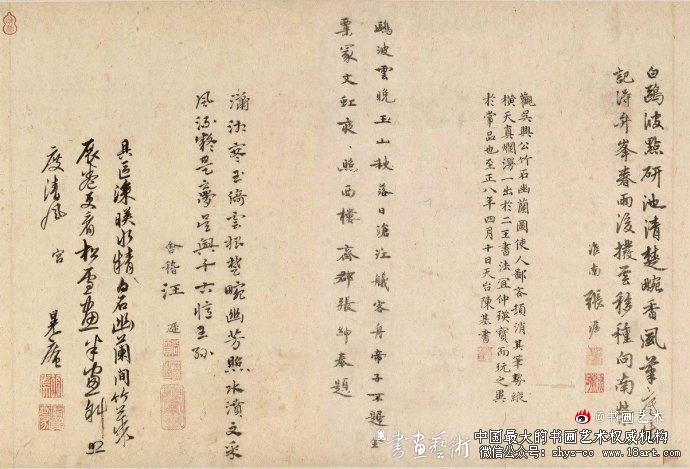 白鷗波點研池清楚畹香風筆
記得弁峯春雨後撥雲移種向南
淮南 張渥
觀吳興公竹石幽蘭圖使人鄙吝頓消其筆勢縱
橫天真爛熳一出於二王書法宜仲瑛寶而玩之異
於常品也至正八年四月十日天台陳基書
鷗波雲晚玉山秋落日滄江艤客舟帝子不歸
冢文虹夜〻照西樓 齋郡張紳奉題
瀟湘寒玉倚雲根楚畹幽芳照水濆文采
風流 夢 與 憶王孫
會稽 汪
具區 水精 白石幽蘭間竹
展卷更看松雪畫
度清風宮
書畫藝術
@书画艺术
中国最大的书画艺术权威机构
微信公众号：shys-cc www.18art.com